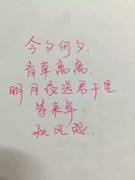 今夕何夕.
君草离离.
明月夜送君千里
等来年
秋风起.